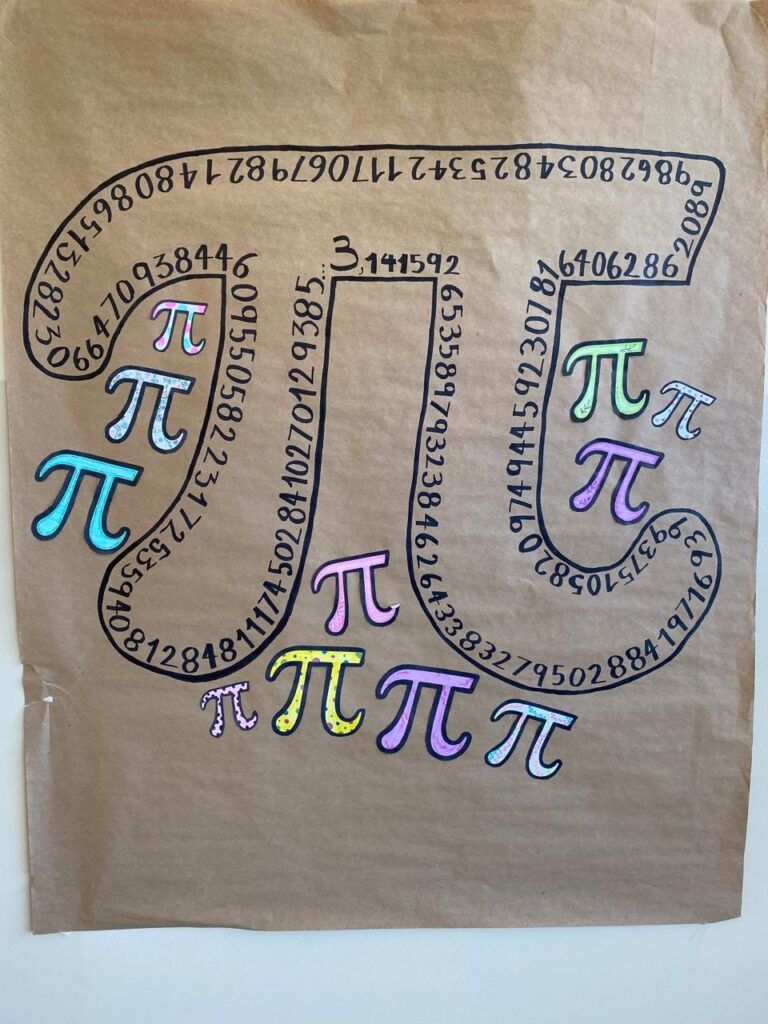 3,14159265358979323846264338327950288419716939937510582097494459230781640628620899862803482534211706798214808651328230664709384460955058223172535940812848111745028410270129385...
π
π
π
π
π
π
π
π
π
π
π